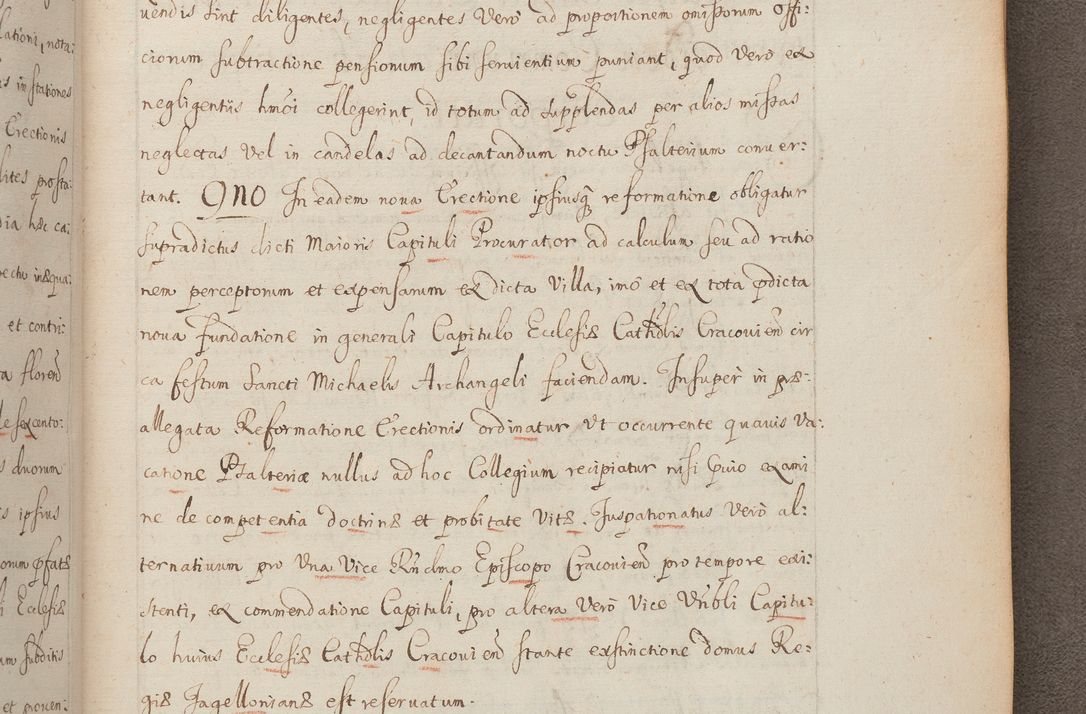 vendis sint diligentes, negligentes Verò ad proportionem omissorum offi:
ciorum subtractione pensionum sibi servientium puniant, quod Verò ex
negligentiis hmõi collegerint, id totum ad supplendas per alios missas
neglectas Vel in candelas ad decantandum noctu Psalterium conver:
tant. 9no In eadem nova Erectione ipsiusq̃ reformatione obligatur
supradictus dicti Maioris Capituli Procurator ad calculum seu ad ratio
nem perceptorum et expensarum ex dicta Villa, imò et ex tota p̃dicta
nova fundatione in generali Capitulo Ecclesiæ Cathdlis Cracovieñ cir
ca festum Sancti Michaelis Archangeli faciendam. Insuper in præ:
allegata Reformatione Erectionis ordinatur Ut occurrente quavis Va:
catione Psalteriæ nullus ad hoc Collegium recipiatur nisi pvio exami
ne de competentia doctrinæ et probitate Vitæ. Juspationatus Verò al:
ternativum pro Una Vice Rñdmo Episcopo Cracovieñ pro tempore exi:
stenti, ex commendatione Capituli, pro altera Verò Vice Vñbli Capitu:
lo huius Ecclesiæ Cathdlis Cracovieñ stante exstinctione domus Re:
giæ Jagellonianæ est reservatum.
lationi, nota:
in stationes
Erectionis
lites prosta:
dia hæc ca:
et contri:
floreñ
sexcento:
duorum
ipsius
orum pfatæ
Ecclesiæ
um subditis
et proven: